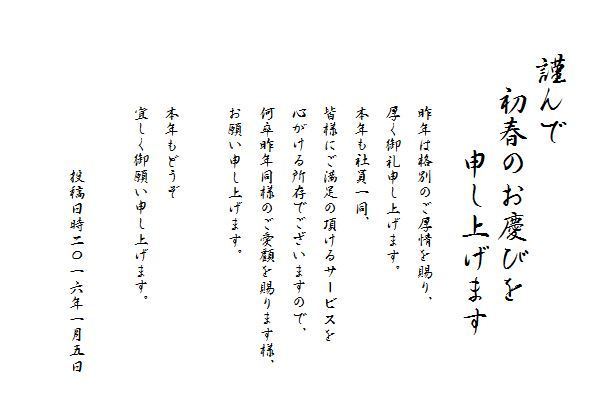 謹んで
初春のお慶びを
申し上げます
昨年は格別のご厚情を賜り、
厚く御礼申し上げます。
本年も社員一同、
皆様にご満足の頂けるサービスを
心がける所存でございますので、
何卒昨年同様のご愛顧を賜ります様、
お願い申し上げます。
本年もどうぞ
宜しく御願い申し上げます。
投稿日時二〇一六年一月五日